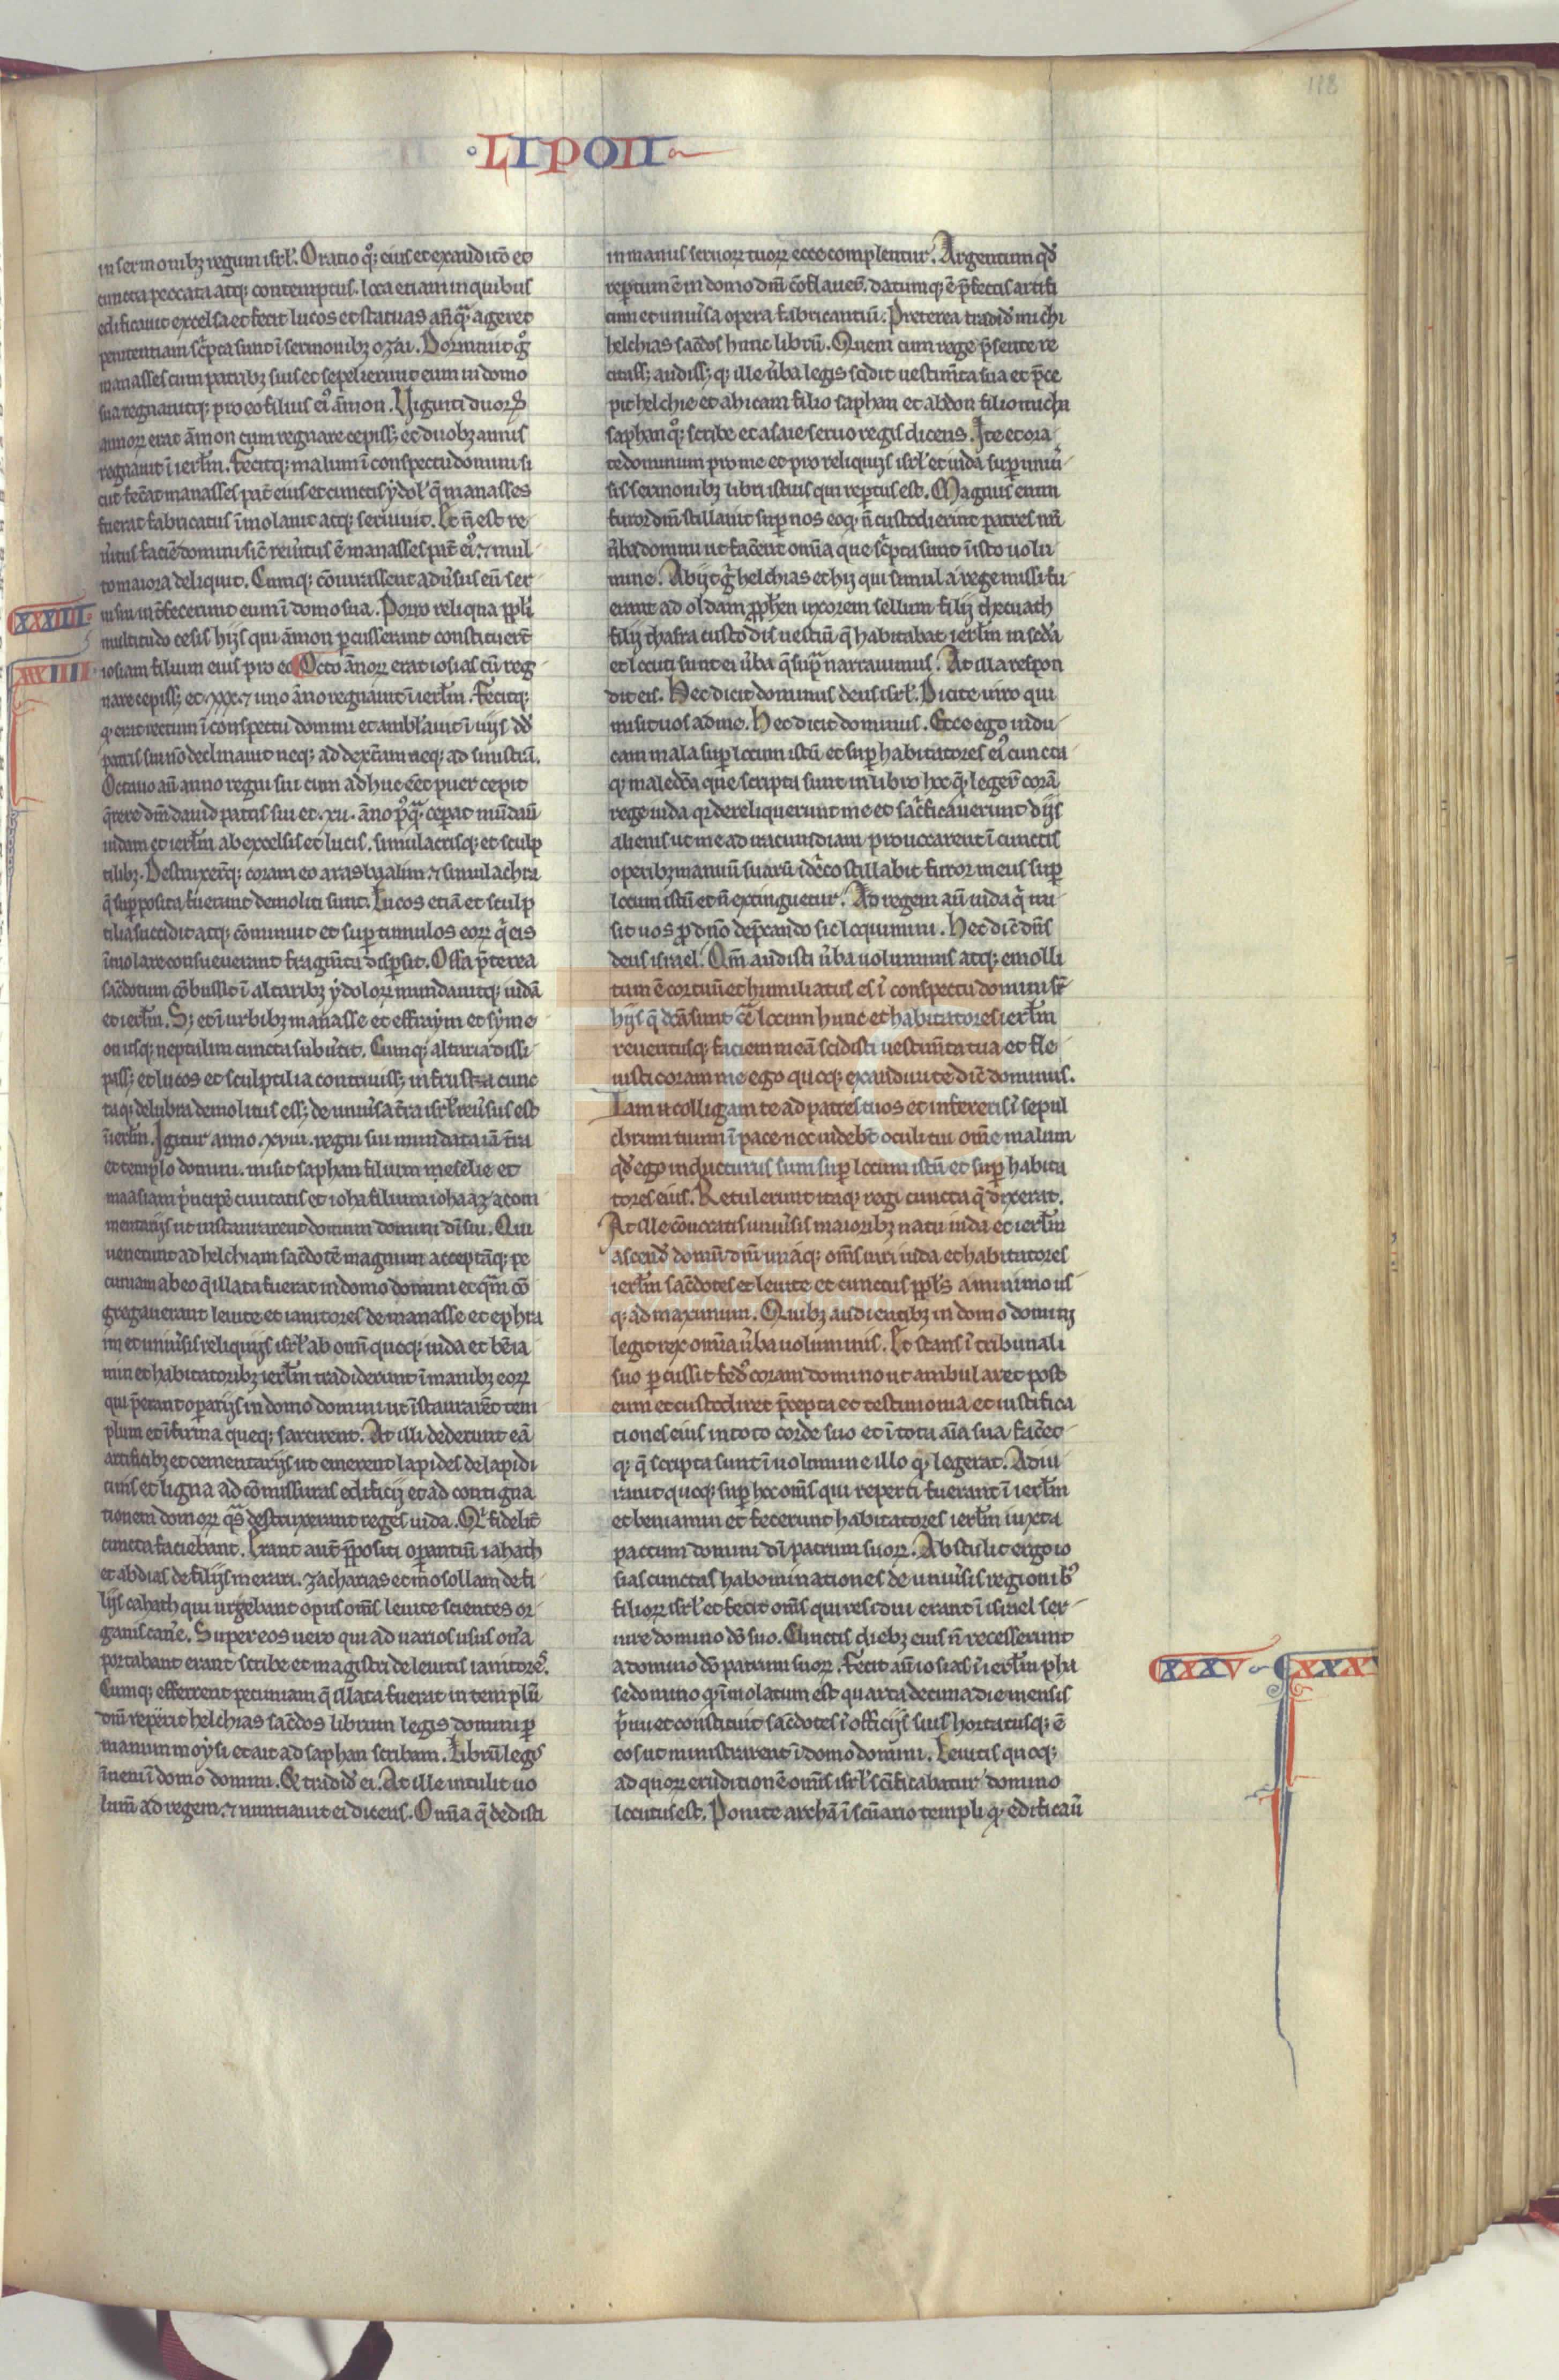 118
LIPON
in sermonibꝫ regum isrł. Oratio qͦꝫ eius et exauditō et
cuncta peccata atqꝫ contemptus. loca etiam in quibus
edificauit excelsa et fecit lucos et statuas añ qͣꝫ ageret
penitentiam sc͛pta sunt ī sermonibꝫ ozai. Dormiuit gͦ
manasses cum patribꝫ suis et sepelierunt eum in domo
sua regnauitqꝫ pro eo filius eiꝰ āmon. Viginti duorꝫ
annoꝝ erat āmon cum regnare cepissꝫ et duobꝫ annis
regnauit ī ierłm. Fecitqꝫ malum ī conspectu domini si
cut fec̄at manasses pat̄ eius et cunctis ydoł q̄ manasses
fuerat fabricatus īmolauit atqꝫ seruiuit. Et n̄ est re
u͛itus faciē domini sic̄ reu͛itus ē manasses pat̄ eiꝰ ⁊ mul
to maiora deliquit. Cumqꝫ cōiurassent adu͛sus eū ser
ui sui int̄fecerunt eum ī domo sua. Porro reliqua ppłi
XXXIIII
multitudo cesis hijs qui āmon percusserant constituer̄t
iosiam filium eius pro eo Octo ānoꝝ erat iosias cū reg
XXXIIII
nare cepissꝫ et .xxx. ⁊ uno āno regnauit ī ierłm. Fecitqꝫ
q erat rectum ī conspectu domini et ambłauit ī uijs dd̄
patris sui nō declinauit neqꝫ ad dext̄am neqꝫ ad sinistrā.
Octauo aū anno regni sui cum adhuc eēt puer cepit
q̄rere dm̄ dauid patris sui et .xii. āno pꝰ qͣꝫ ceperat mūdauͥ
iudam et ierłm ab excelsis et lucis. simulacrisqꝫ et sculp
tilibꝫ. Destruxer̄tqꝫ coram eo aras byalim ⁊ simulachra
q̄ suꝑposita fuerunt demoliti sunt. Lucos etiā et sculp
tilia succidit atqꝫ cōminuit et suꝑ tumulos eoꝝ qͥ eis
īmolare consueuerant fragm̄ta disꝑsit. Ossa p̄terea
sac̄dotum cōbussit ī altaribꝫ ydoloꝝ mundauitqꝫ iudā
et ierłm. Sꝫ et ī urbibꝫ manasse et effraym et syme
on usqꝫ neptalim cuncta subu͛tit. Cumqꝫ altaria dissi
passꝫ et lucos et sculptilia contriuissꝫ in frustra cunc
taqꝫ delubra demolitus essꝫ de uniu͛sa t̄ra isrł reu͛sus est
ī ierłm. Igitur anno .xviii. regni sui mundata iā t̄ra
et templo domini. misit saphan filium meselie et
maasiam p͛ncipē ciuitatis et ioha filium iohaaz a com
mentarijs ut instaurarent domum domini dī sui. Qui
uenerunt ad helchiam sac̄dotē magnum acceptāqꝫ pe
cuniam ab eo q̄ illata fuerat in domo domini et qm̄ cō
gregauerant leuite et ianitores de manasse et ephra
im et uniu͛sis reliquijs isrł ab omn̄ quoqꝫ iuda et bēia
min et habitatoribꝫ ierłm tradiderunt ī manibꝫ eoꝝ
qui p̄erant oꝑarijs in domo domini ut īstaurarēt tem
plum et īfirma queqꝫ sarcirent. At illi dederunt eā
artificibꝫ et cementarijs ut emerent lapides de lapidi
cinis et ligna ad cōmissuras edificij et ad contigna
tionem domoꝝ qͣs destruxerant reges iuda. Qͥ fidelit̄
cuncta faciebant. Erant aut̄ p̄positi oꝑantiū iahath
et abdias de filijs merari. zacharias et mosollam de fi
lijs cahath qui urgebant opus oms̄ leuite scientes or
ganis can̄e. Super eos uero qui ad uarios usus on̄a
portabant erant scribe et magistri de leuitis ianitoreꝫ.
Cumqꝫ efferrent pecuniam q̄ illata fuerat in templū
dm̄ reꝑerit helchias sac̄dos librum legis domini ꝑ
manum moysi et ait ad saphan scribam. Librū legꝭ
īueni ī domo domini. Et tradidͭ ei. At ille intulit uo
lum̄ ad regem ⁊ nuntiauit ei dicens. Omn̄a q̄ dedisti
in manus seruoꝝ tuoꝝ ecce complentur. Argentum qd̄
reꝑtum ē in domo dm̄ cōflauer̄. datumqꝫ ē p̄fectis artifi
cum et uniu͛sa opera fabricantiū. Preterea tradidͭ michi
helchias sac̄dos hunc librū. Quem cum rege p̄sente re
citassꝫ audissꝫqꝫ ille u͛ba legis scidit uestim̄ta sua et p̄ce
pit helchie et ahicam filio saphan et abdon filio micha
saphan qͦꝫ scribe et asaie seruo regis dicens. Ite et ora
te dominum pro me et pro reliquijs isrł et iuda suꝑ uniu͛
sis sermonibꝫ libri istius qui reꝑtus est. Magnus enim
furor dm̄ stillauit suꝑ nos eo qꝫ n̄ custodierint patres nr̄i
u͛ba domini ut facerent omn̄a que sc͛pta sunt ī isto uolu
mine. Abijt gͦ helchias et hij qui simul a rege missi fu
erant ad oldam ꝓphen uxorem sellum filij thecuath
filij chasra custodis uestiū q̄ habitabat ierłm in sed̄a
et locuti sunt ei u͛ba q̄ supͣ narrauimus. At illa respon
dit eis. Hec dicit dominus deus isrł. Dicite uiro qui
misit uos ad me. Hec dicit dominus. Ecce ego indu
cam mala suꝑ locum istū et suꝑ habitatores eiꝰ cuncta
qꝫ maledc̄a que scripta sunt in libro hoc q̄ leger̄t corā
rege iuda qͥ dereliquerunt me et sac͛ficauerunt dijs
alienis ut me ad iracundiam prouocarent ī cunctis
operibꝫ manuū suarū idc͛co stillabit furor meus suꝑ
locum istū et n̄ extinguetur. Ad regem aū iuda qͥ mi
sit uos ꝓ dn̄o dep̄cando sic loquimini. Hec dic̄ dn̄s
deus israel. Qm̄ audisti u͛ba uoluminis atqꝫ emolli
tum ē cor tuū et humiliatus es ī conspectu domini suꝑ
hijs q̄ dc̄a sunt cͣ locum hunc et habitatores ierłm
reueritusqꝫ faciem meā scidisti uestim̄ta tua et fle
uisti coram me ego quoqꝫ exaudiui te dic̄ dominus.
Iam n̄ colligam te ad patres tuos et infereris ī sepul
chrum tuum ī pace nec uideb̄t oculi tui omē malum
qd̄ ego inducturus sum suꝑ locum istū et suꝑ habita
tores eius. Retulerunt itaqꝫ regi cuncta q̄ dixerat.
At ille cōuocatis uniu͛sis maioribꝫ natu iuda et ierłm
ascend̄ domū dm̄ unaqꝫ oms̄ uiri iuda et habitatores
ierłm sac̄dotes et leuite et cunctus ppłs a minimo us
qꝫ ad maximum. Quibꝫ audientibꝫ in domo domini
legit rex omn̄a u͛ba uoluminis. Et stans ī tribunali
suo ꝑcussit fedꝰ coram domino ut ambularet post
eum et custodiret p̄cepta et testimonia et iustifica
tiones eius in toto corde suo et ī tota aīa sua fac̄et
qꝫ q̄ scripta sunt ī uolumine illo qꝫ legerat. Adiu
rauit quoqꝫ suꝑ hoc oms̄ qui reperti fuerant ī ierłm
et beniamin et fecerunt habitatores ierłm iuxta
pactum domini dī patrum suoꝝ. Abstulit ergo io
sias cunctas habominationes de uniu͛sis regionibꝰ
filioꝝ isrł et fecit oms̄ qui residui erant ī israel ser
uire domino dō suo. Cunctis diebꝫ eius n̄ recesserunt
a domino dō patrum suoꝝ. Fecit aū iosias ī ierłm pha
XXXV XXXV
se domino qͥ īmolatum est quarta decima die mensis
p͛mi et constituit sac̄dotes ī officijs suis hortatusqꝫ ē
eos ut ministrarent ī domo domini. Leuitis quoqꝫ
ad quoꝝ eruditionē omīs isrł sc̄ificabatur domino
locutus est. Ponite archā ī sc̄uario templi qꝫ edificauͥ